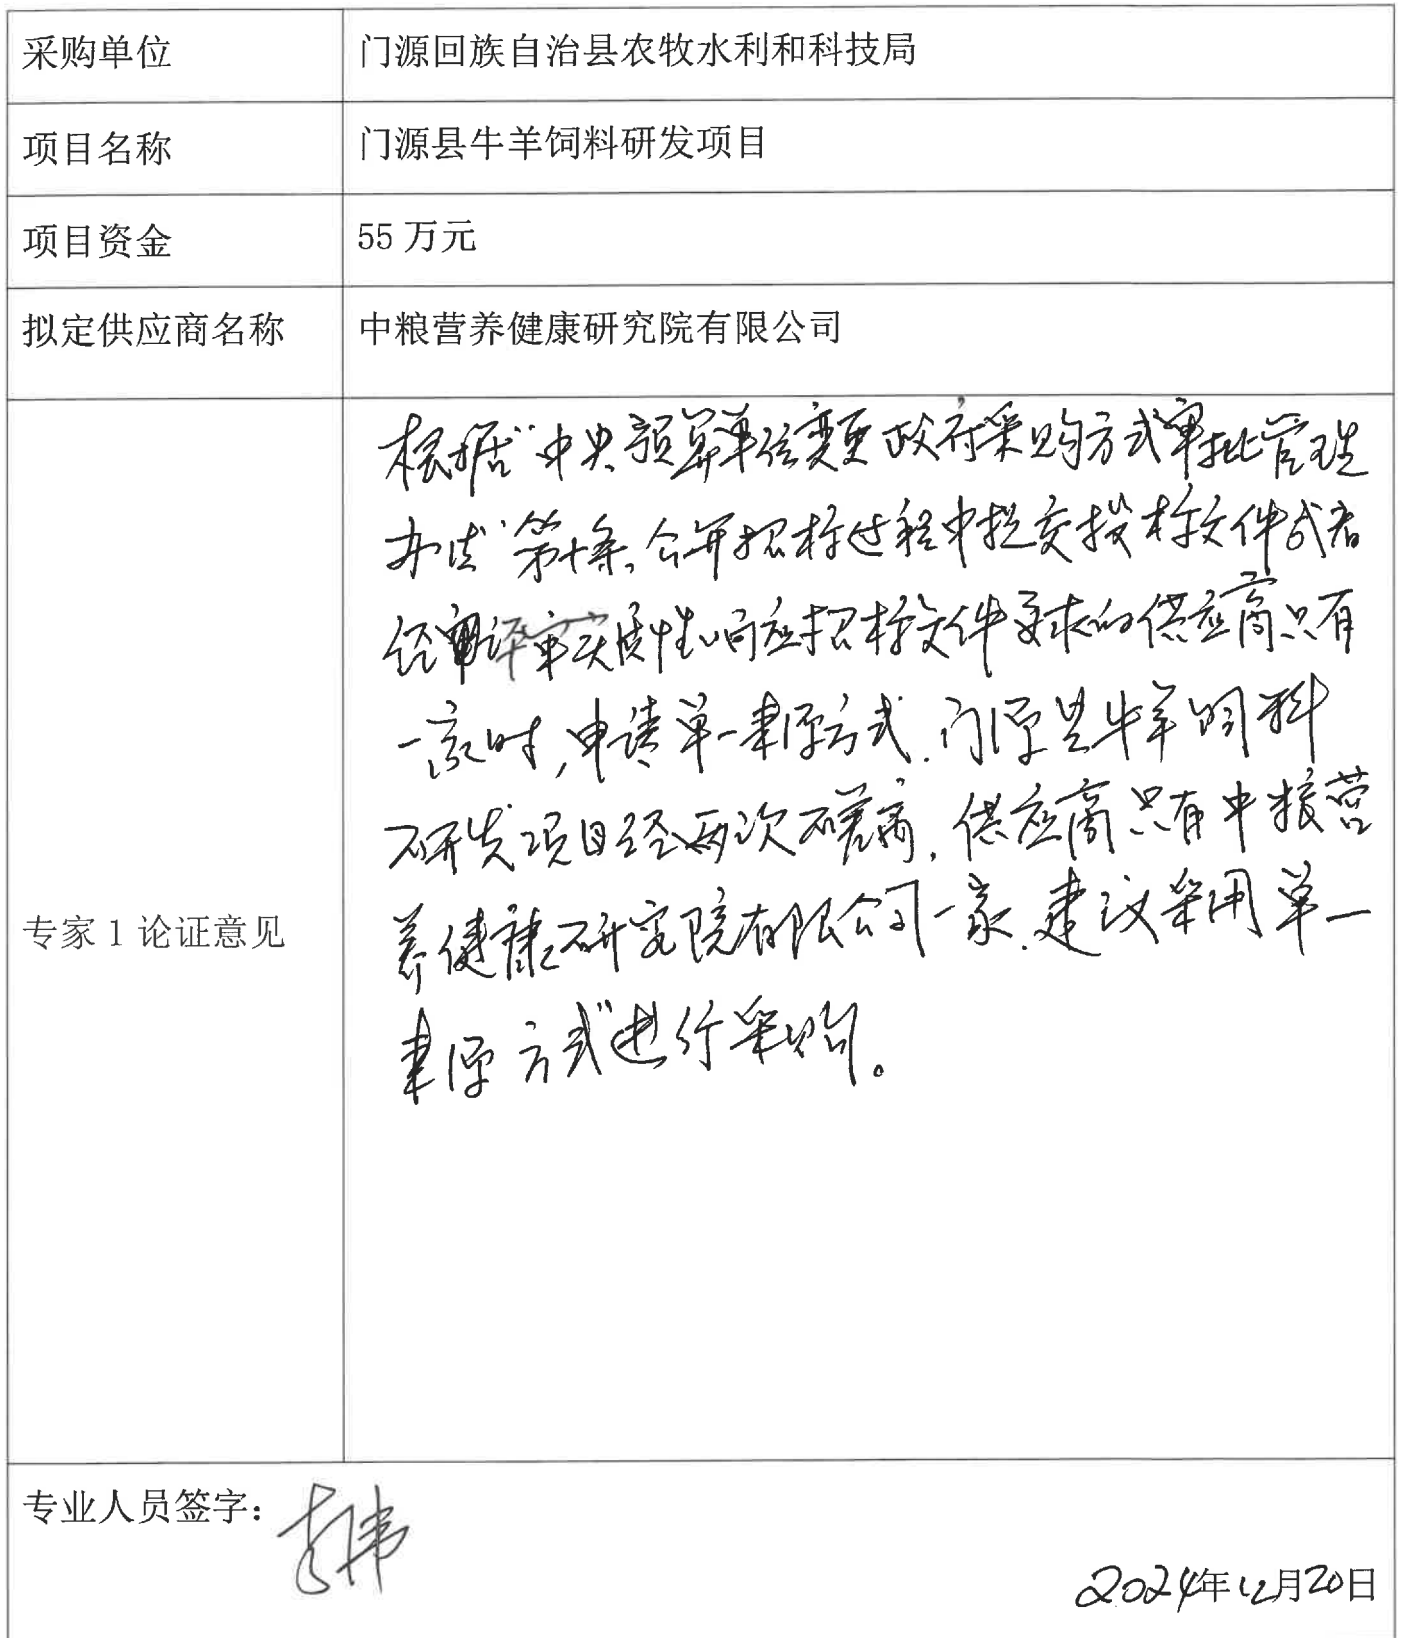 采购单位
门源回族自治县农牧水利和科技局
项目名称
门源县牛羊饲料研发项目
项目资金
55 万元
拟定供应商名称
中粮营养健康研究院有限公司
专家 1 论证意见
根据“中央预算单位变更政府采购方式审批管理
办法”第十条，公开招标过程中提交投标文件或者
经评审实质性响应招标文件要求的供应商只有
一家时，申请单一来源方式．门源县牛羊饲料
研发项目经两次磋商，供应商只有中粮营
养健康研究院有限公司一家．建议采用单一
来源方式”进行采购。
专业人员签字：
2024年12月20日